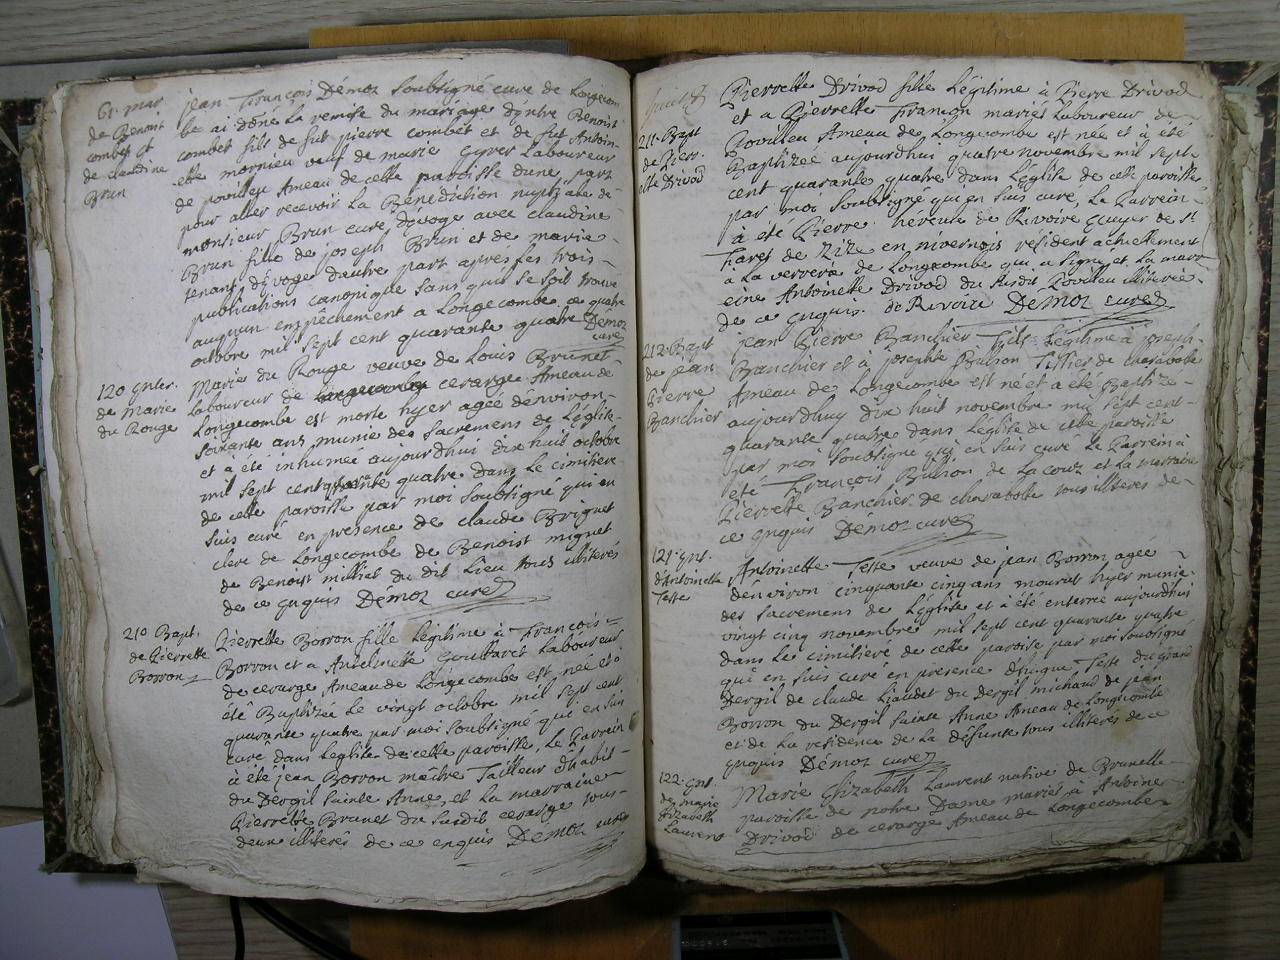 61. mar
de Benoit
combet et
de claudine
Brun
jean François Démoz soubsigné curé de Longecom
be ai doné la remise du mariage d'entre Benoist
combet fils de fut pierre combet et de fut Antoin-
ette mornieu veuf de marie Cyver Laboureur
de povilleu Ameau de cette paroisse dune part
pour aller recevoir la Bénédiction nuptiale de
monsieur Brun curé dovoge avec claudine
Brun fille de joseph Brun et de marie
jenant d'évoge dautre part apres Les trois
publications canonique sans qu'il se soit trouvé
auqun empêchement a Longecombe ce quatre
octobre mil sept cent quarante quatre Démoz
curé
120 Enter.
de Marie
du Rouge
Marie du Rouge veuve de Louis Brunet
Laboureur de cerarge Ameau de
Longecombe est morte hyer agée d'environ
soixante ans munie des sacremens de L'église
et a été inhumée aujourdhui dix huit octobre
mil sept cent quarante quatre dans Le cimitiere
de cette paroisse par moi soubsigné qui en
suis curé en presence de claude Brignet
clerc de Longecombe de Benoist mignet
de Benoist milliet du dit Lieu tous illiterés
de ce enquis Démoz curé
210 Bapt.
de Pierrette
Borron
Pierrette Borron fille Légitime à François
Borron et a Antelmette Gouttaret Laboureur
de cerarge Ameau de Longecombe est née et à
été Baptizée le vingt octobre mil sept cent
quarante quatre par moi soubsigné qui en suis
curé dans Leglise de cette paroisse, Le Parrein
à été jean Borron maitre Tailleur d'habit
du Dergil sainte Anne, et La marraine
Pierrette Brunet du susdit cerarge tous
deux illiterés de ce enquis Démoz curé
211. Bapt
de Pierr.
ette Drivod
Pierrette Drivod fille Légitime à Pierre Drivod
et a Pierrette Françon mariés Laboureur de
Povilleu Ameau de Longecombe est née et à été
Baptizée aujourdhui quatre novembre mil sept
cent quarante quatre dans Leglise de cette paroisse
par moi soubsigné qui en suis curé, Le Parrein
à été Pierre de Rivoire Ecuyer de st
haret de Zize en nivernois résident actuellement
a La verrerie de Longecombe qui a signé et La marr
eine Antoinette Drivod du susdit Povilleu illiterée
de ce Enquis. de Rivoire Démoz curé
212. Bapt
de jean
Pierre
Banchier
jean Pierre Banchier Fils Légitime à joseph
Banchier et à josephte Buison Tissier de charabote
Ameau de Longecombe est né et a été Baptizé
aujourdhuy dix huit novembre mil sept cent
quarante quatre dans Leglise de cette paroisse
par moi soubsigné qui en suis curé Le Parrein à
été François Buison de La couz et La marraine
Pierrette Banchier de charabote tous illiterés de
ce enquis Démoz curé
121. Ent.
d'Antoinette
Teste
Antoinette Teste veuve de jean Borron agée
denviron cinquante cinq ans mourut hyer munie
des sacremens de L'église et à été enterrée aujourdhui
vingt cinq novembre mil sept cent quarante quatre
dans le cimitiere de cette paroisse par moi soubsigné
qui en suis curé en presence Teste du grand
Dergil de claude Liaudet du dergil michaud de jean
Borron du Dergil sainte Anne Ameau de Longecombe
et de La residence de La défunte tous illiterés de ce
enquis Démoz curé
122. Ent.
de marie
Elizabeth
Laurent
Marie Elizabeth Laurent native de Brunelle
paroisse de notre Dame mariée à Antoine
Drivod de cerarge Ameau de Longecombe